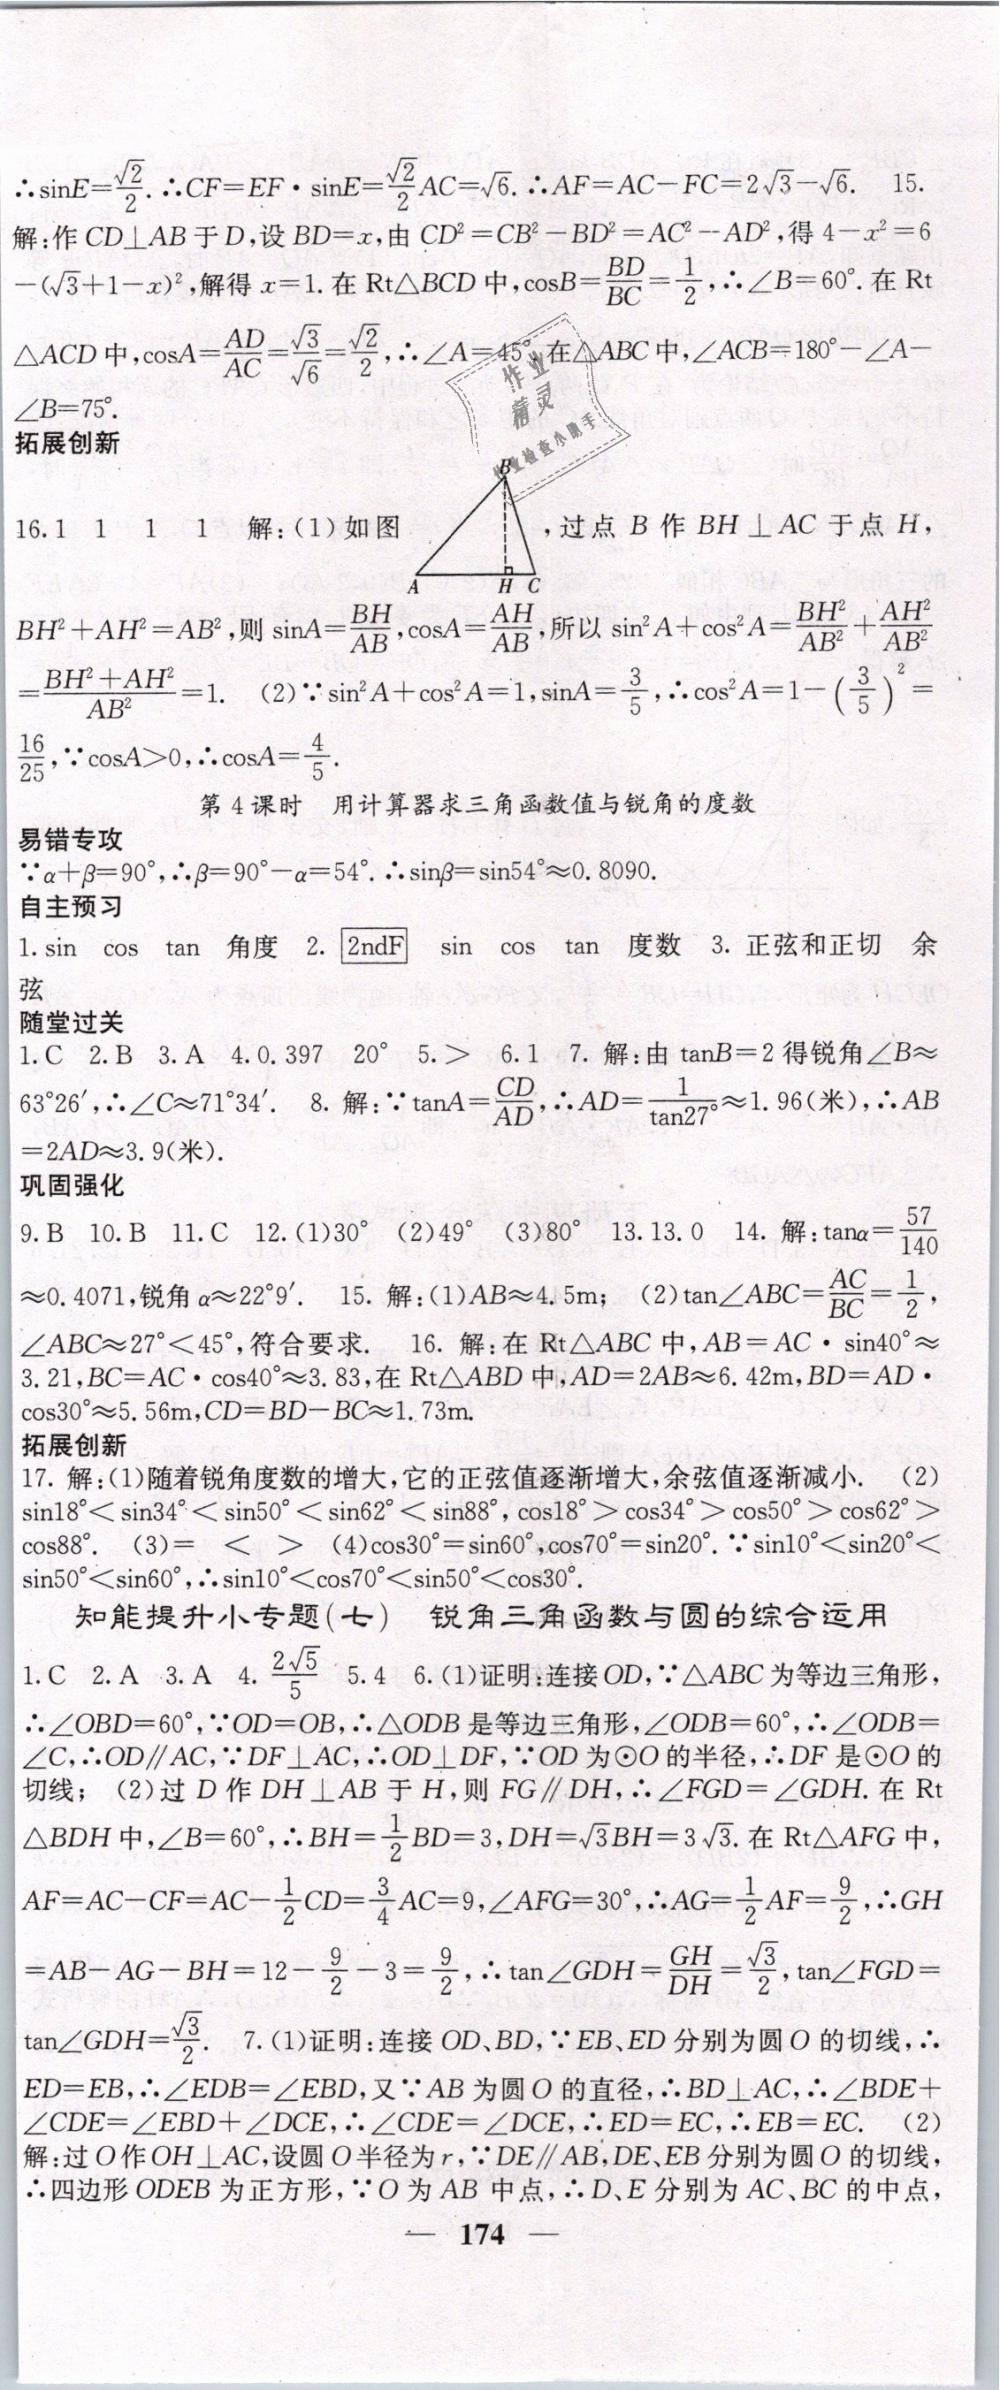 ∴sinE=√2/2. ∴CF=EF·sinE=√2/2 AC=√6. ∴AF=AC-FC=2√3-√6. 15.
解:作CD⊥AB于D,设BD=x,由CD²=CB²-BD²=AC²-AD²,得4-x²=6
-(√3+1-x)²,解得x=1.在Rt△BCD中,cosB=BD/BC=1/2,∴∠B=60°.在Rt
△ACD中,cosA=AD/AC=√3/√6=√2/2,∴∠A=45°.在△ABC中,∠ACB=180°-∠A-
∠B=75°.
作业
精灵
作业检查小助手
拓展创新
B
16.1 1 1 1 解:(1)如图 ,过点B作BH⊥AC于点H,
A H C
BH²+AH²=AB²,则sinA=BH/AB,cosA=AH/AB,所以sin²A+cos²A=BH²/AB²+AH²/AB²
=(BH²+AH²)/AB²=1. (2)∵sin²A+cos²A=1,sinA=3/5,∴cos²A=1-(3/5)²=
16/25,∵cosA>0,∴cosA=4/5.
第4课时 用计算器求三角函数值与锐角的度数
易错专攻
∵α+β=90°,∴β=90°-α=54°.∴sinβ=sin54°≈0.8090.
自主预习
1.sin cos tan 角度 2. 2ndF sin cos tan 度数 3.正弦和正切 余
弦
随堂过关
1.C 2.B 3.A 4.0.397 20° 5.> 6.1 7.解:由tanB=2得锐角∠B≈
63°26′,∴∠C≈71°34′. 8.解:∵tanA=CD/AD,∴AD=1/tan27°≈1.96(米),∴AB
=2AD≈3.9(米).
巩固强化
9.B 10.B 11.C 12.(1)30° (2)49° (3)80° 13.13.0 14.解:tanα=57/140
≈0.4071,锐角α≈22°9′. 15.解:(1)AB≈4.5m; (2)tan∠ABC=AC/BC=1/2,
∠ABC≈27°<45°,符合要求. 16.解:在Rt△ABC中,AB=AC·sin40°≈
3.21,BC=AC·cos40°≈3.83,在Rt△ABD中,AD=2AB≈6.42m,BD=AD·
cos30°≈5.56m,CD=BD-BC≈1.73m.
拓展创新
17.解:(1)随着锐角度数的增大,它的正弦值逐渐增大,余弦值逐渐减小. (2)
sin18°<sin34°<sin50°<sin62°<sin88°,cos18°>cos34°>cos50°>cos62°>
cos88°. (3)= < > (4)cos30°=sin60°,cos70°=sin20°.∵sin10°<sin20°<
sin50°<sin60°,∴sin10°<cos70°<sin50°<cos30°.
知能提升小专题(七) 锐角三角函数与圆的综合运用
1.C 2.A 3.A 4.2√5/5 5.4 6.(1)证明:连接OD,∵△ABC为等边三角形,
∴∠OBD=60°,∵OD=OB,∴△ODB是等边三角形,∠ODB=60°,∴∠ODB=
∠C,∴OD∥AC,∵DF⊥AC,∴OD⊥DF,∵OD为⊙O的半径,∴DF是⊙O的
切线; (2)过D作DH⊥AB于H,则FG∥DH,∴∠FGD=∠GDH.在Rt
△BDH中,∠B=60°,∴BH=1/2 BD=3,DH=√3BH=3√3.在Rt△AFG中,
AF=AC-CF=AC-1/2 CD=3/4 AC=9,∠AFG=30°,∴AG=1/2 AF=9/2,∴GH
=AB-AG-BH=12-9/2-3=9/2,∴tan∠GDH=GH/DH=√3/2,tan∠FGD=
tan∠GDH=√3/2. 7.(1)证明:连接OD、BD,∵EB、ED分别为圆O的切线,∴
ED=EB,∴∠EDB=∠EBD,又∵AB为圆O的直径,∴BD⊥AC,∴∠BDE+
∠CDE=∠EBD+∠DCE,∴∠CDE=∠DCE,∴ED=EC,∴EB=EC. (2)
解:过O作OH⊥AC,设圆O半径为r,∵DE∥AB,DE、EB分别为圆O的切线,
∴四边形ODEB为正方形,∵O为AB中点,∴D、E分别为AC、BC的中点,
— 174 —